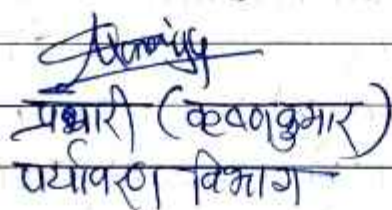 प्रभारी (कृष्णकुमार)
पर्यावरण विभाग